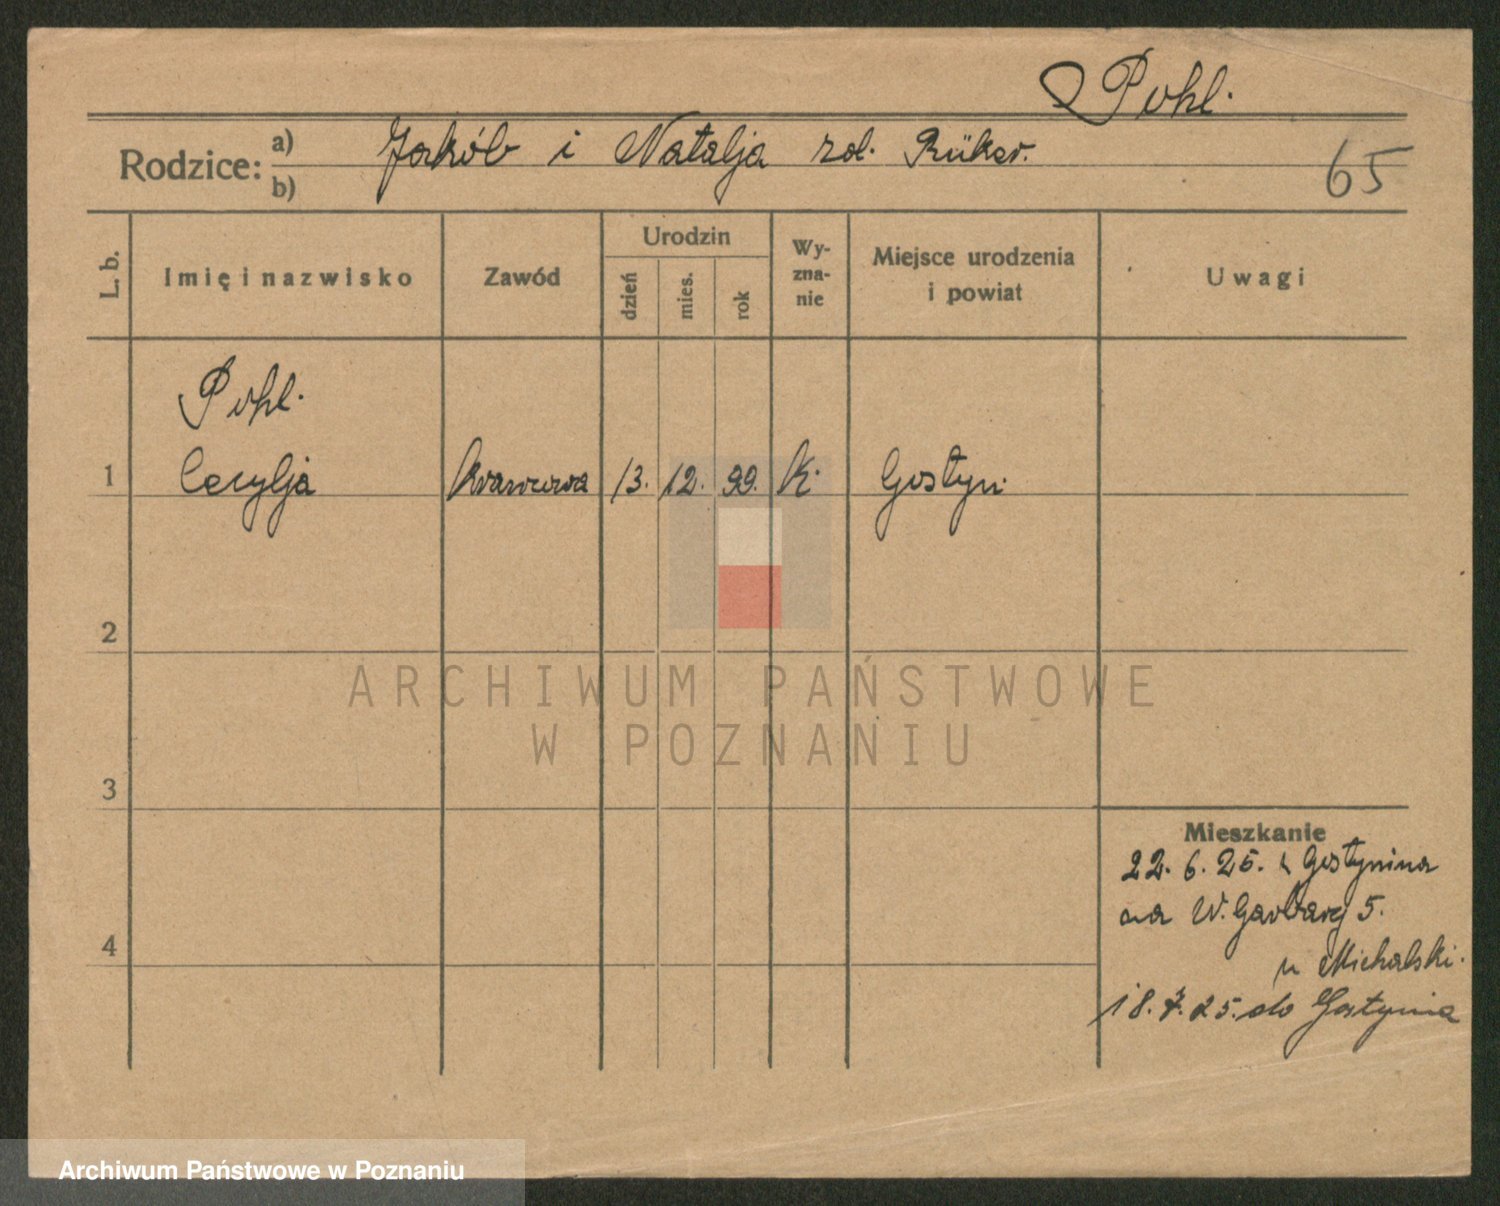 Pohl.
Rodzice: a) Jakób i Natalja
b)
65
L. b. Imię i nazwisko Zawód Urodzin dzień mies. rok Wy-zna-nie Miejsce urodzenia i powiat Uwagi
Pohl.
1 Cecylja Krawcowa 13. 12. 99. K. Gostyń
2
3
4
Mieszkanie
22. 6. 25. z Gostynina
na W. Garbary 5.
u Michalski.
18. 7. 25. do Gostynia
ARCHIWUM PAŃSTWOWE
W POZNANIU
Archiwum Państwowe w Poznaniu